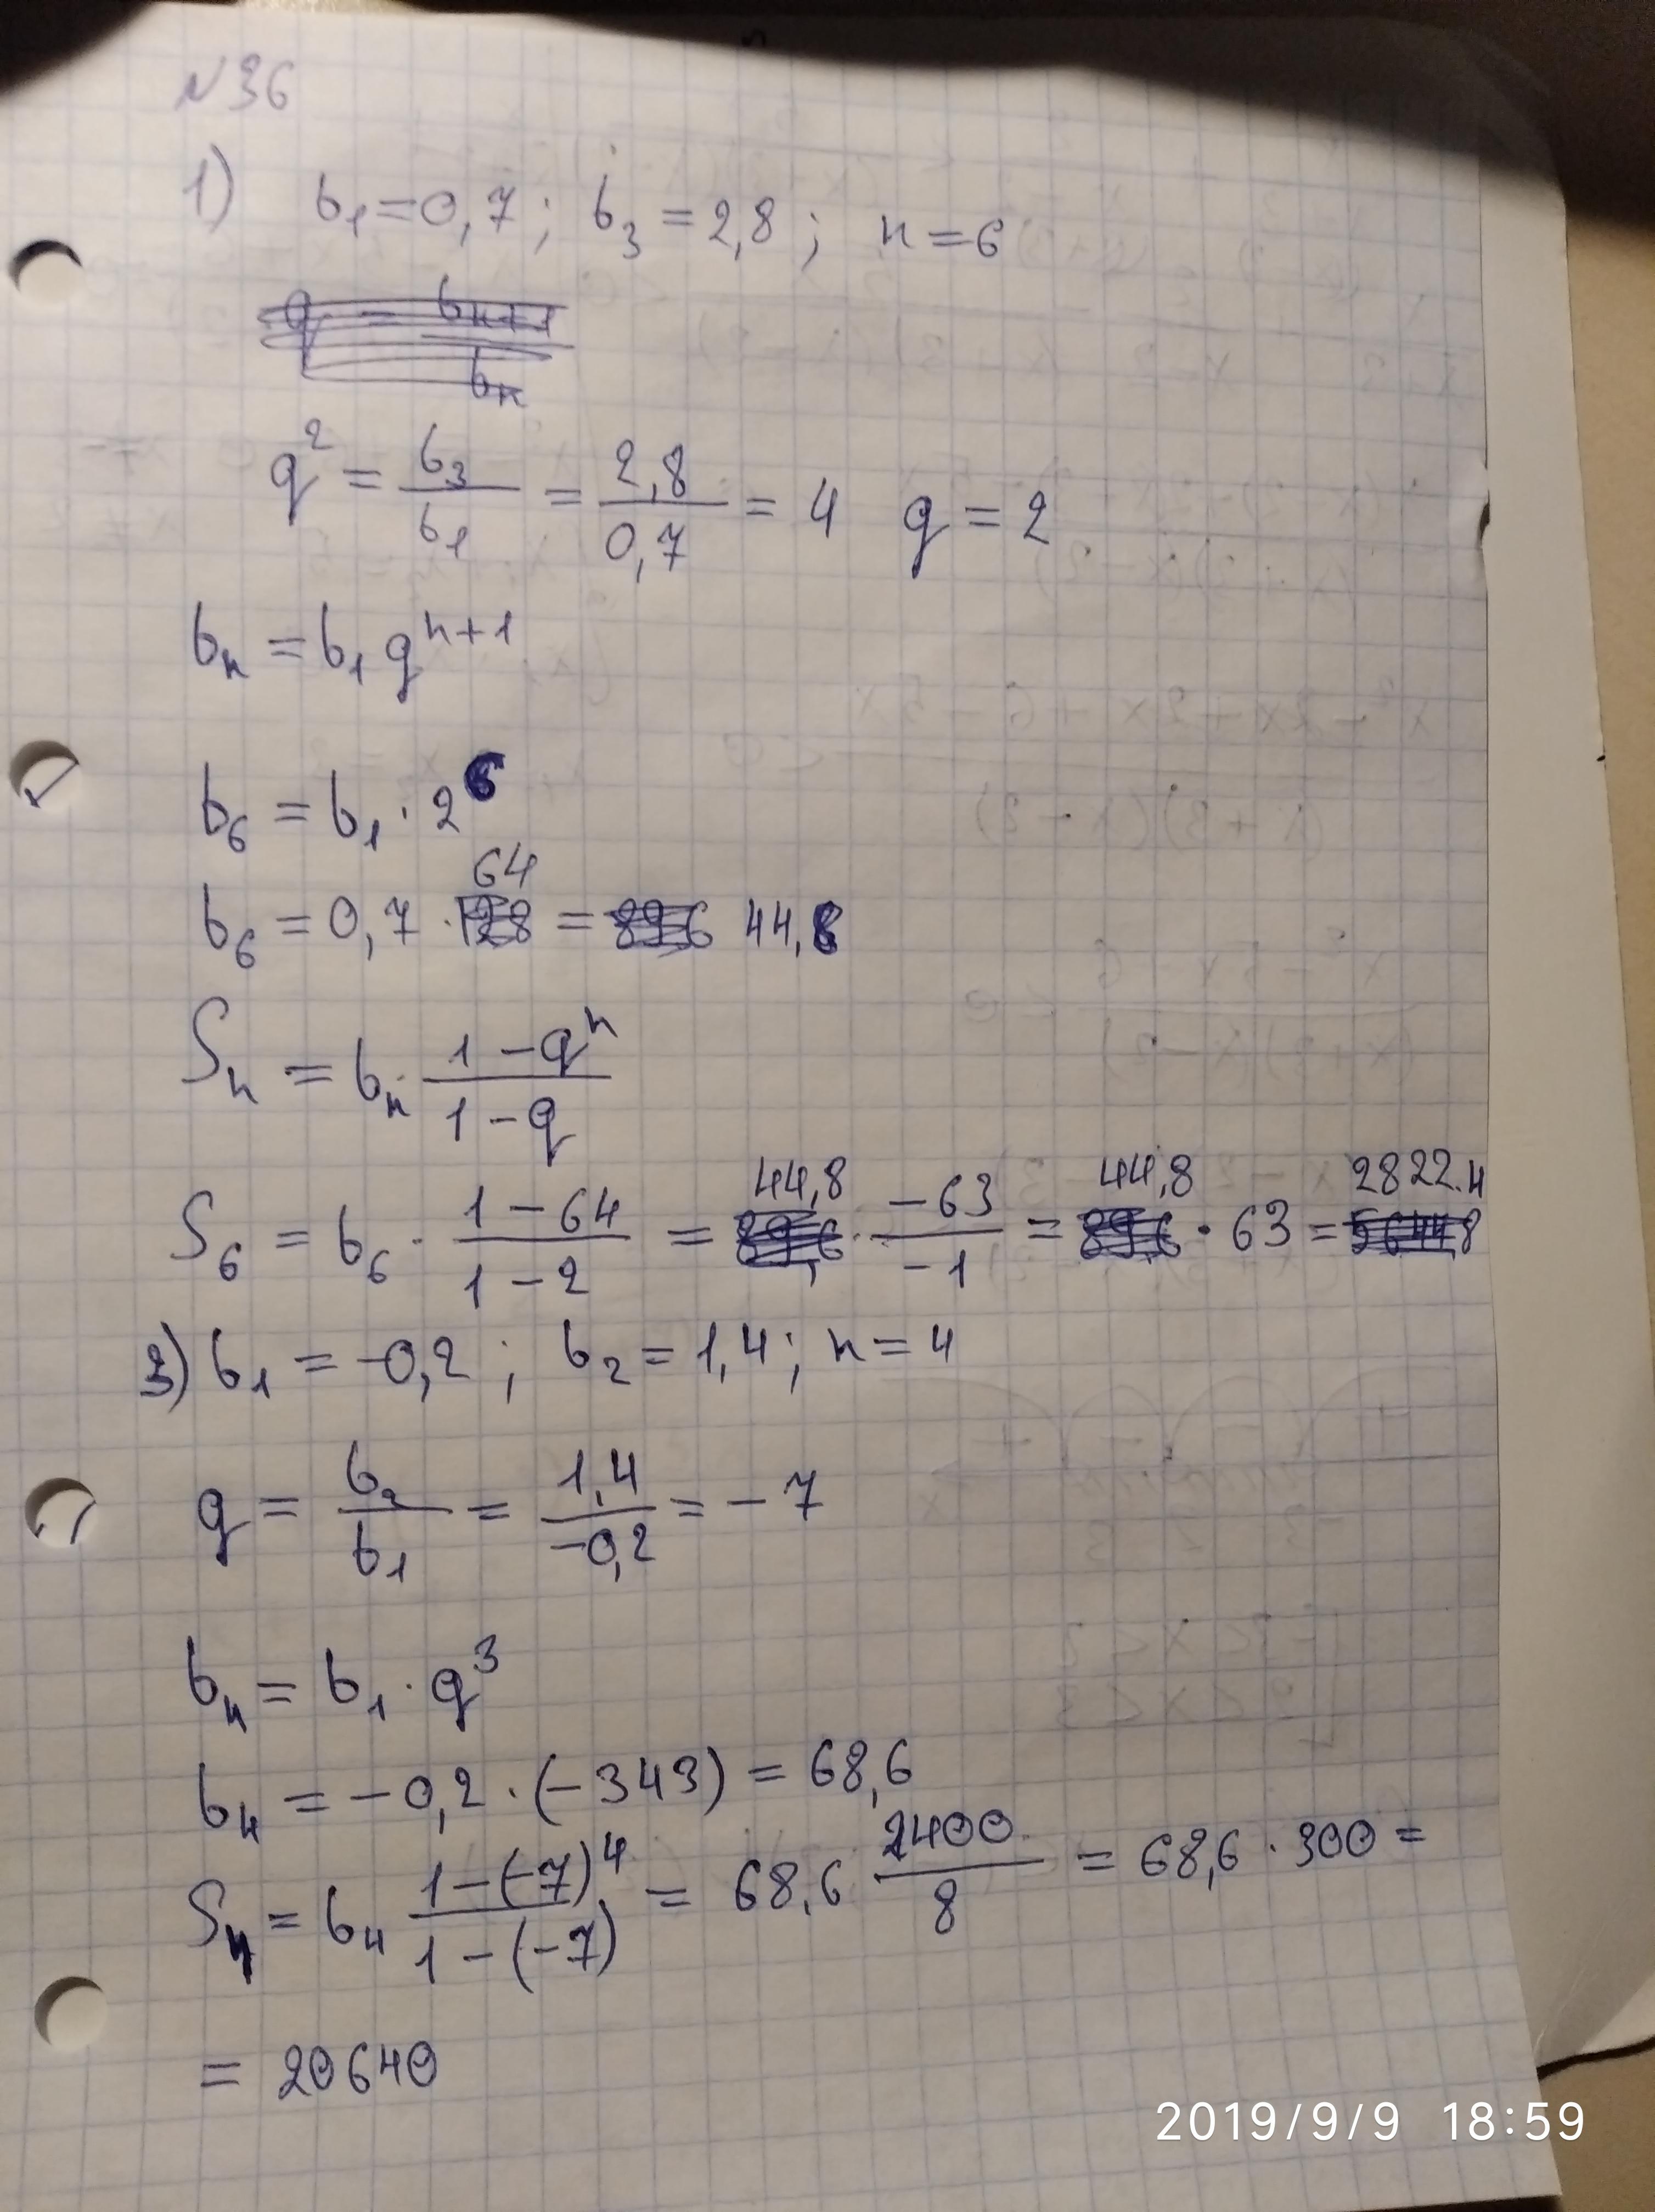 N36
1) b₁=0,7; b₃=2,8; n=6
q = bₙ₊₁/bₙ
q² = b₃/b₁ = 2,8/0,7 = 4 q = 2
bₙ = b₁ qⁿ⁺¹
b₆ = b₁ · 2⁶
64
b₆ = 0,7 · 128 = 89,6 44,8
Sₙ = bₙ · (1-qⁿ)/(1-q)
44,8 44,8 2822.4
S₆ = b₆ · (1-64)/(1-2) = 89,6 · (-63)/(-1) = 89,6 · 63 = 5644,8
3) b₁ = -0,2; b₂ = 1,4; n = 4
q = b₂/b₁ = 1,4/-0,2 = -7
b₄ = b₁ · q³
b₄ = -0,2 · (-343) = 68,6
S₄ = b₄ (1-(-7)⁴)/(1-(-7)) = 68,6 2400/8 = 68,6 · 300 =
= 20640
2019/9/9 18:59